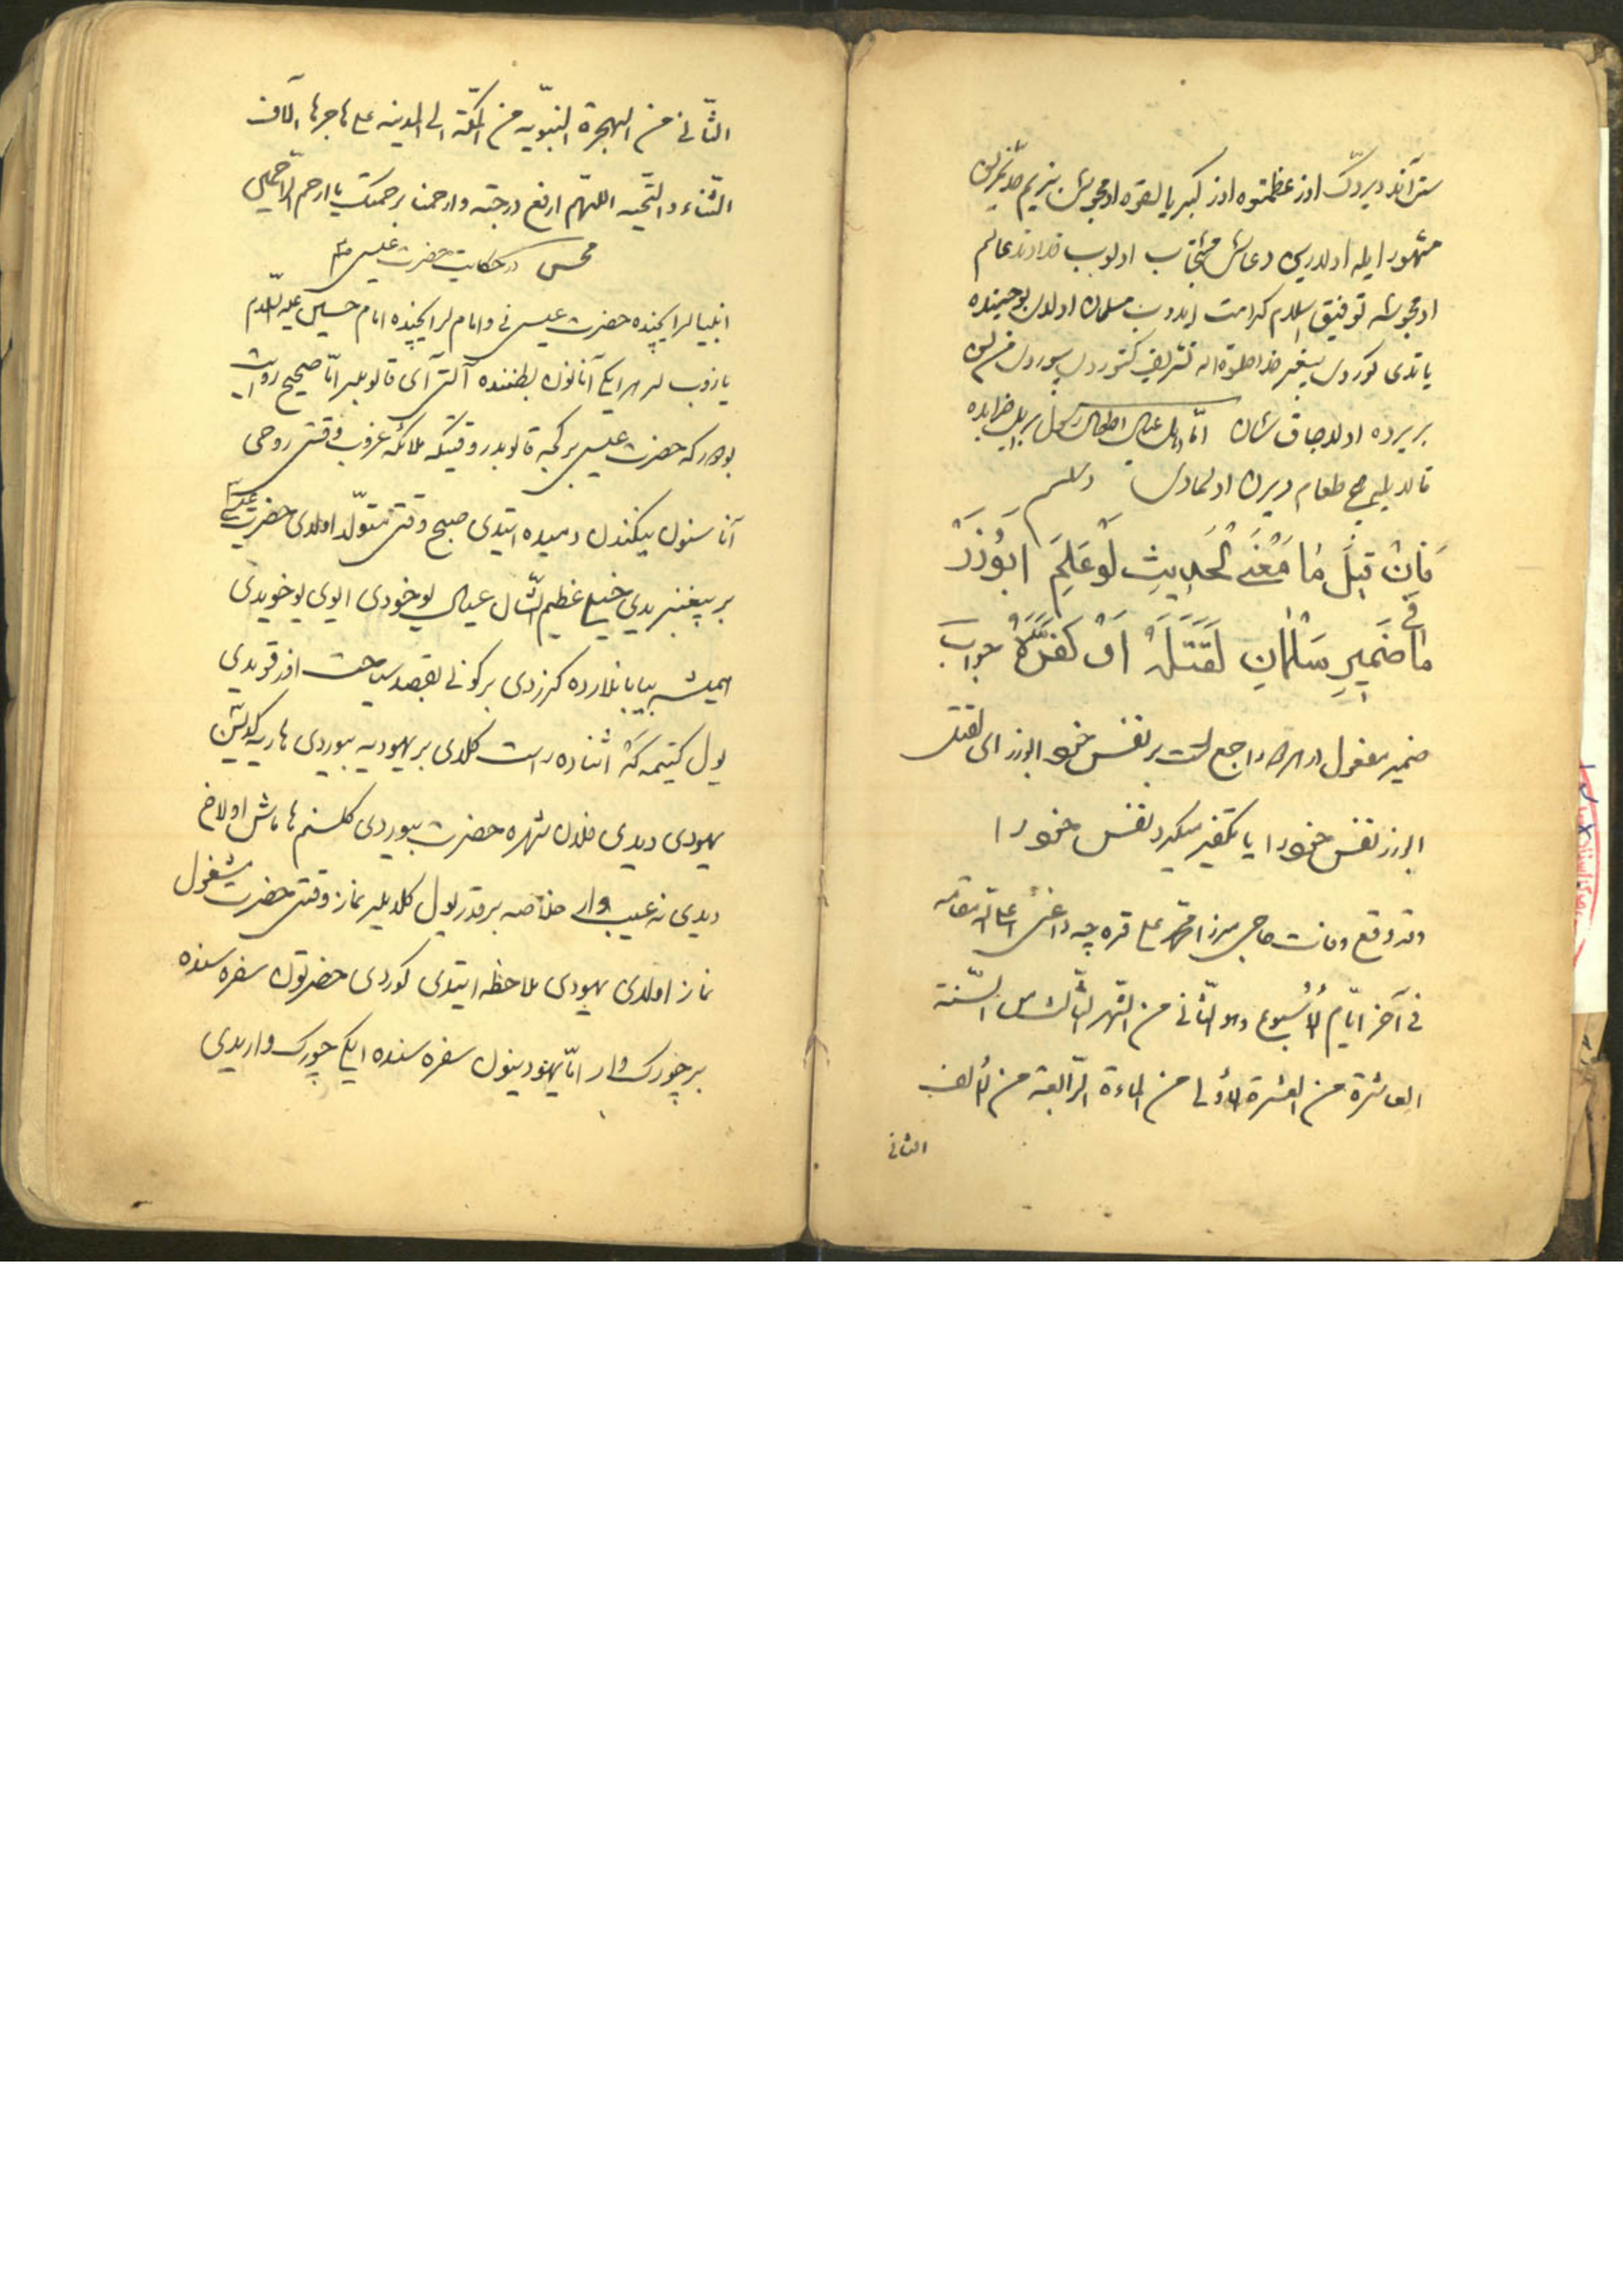 سنی آند ویردک اوز عظمتوه اوز کبریالقوه او مجوسی
مشهور ایله اولدیرسن دعاسی مستجاب اولوب خداوند عالم
او مجوسه توفیق اسلام کرامت ایدوب مسلمان اولدی
یاتدی کوردی پیغمبر تشریف کتوردی بیوردی
بر یرده اولاجاق سان اما اهل عیال اطفال رسول
قالدیلر هیچ طعام ویرن اولمادی والسلام
فَاِنْ قِیلَ مَا مَعْنَی الْحَدِیثِ لَوْ عَلِمَ اَبُوذَرْ
مَا فِی ضَمِیرِ سَلْمَانِ لَقَتَلَهُ اَوْ کَفَّرَهُ جواب
ضمیر مفعول در هر دو راجع است بر نفس خود ابوذر ای لقتل
ابوذر نفس خود را یا تکفیر میکرد نفس خود را
وقد وقع وفات حاجی میرزا محمد علی قره چه داغی اعلی الله مقامه
فی آخر ایّام الاُسبوع وهو الثّانی من الشّهر الثالث من السّنة
العاشرة من العشرة الاولی من الماءة الرّابعة من الألف
الثانی
الثّانی من الهجرة النّبویّه من المکّة الی المدینه علی هاجرها آلاف
الثّناء والتّحیه اللّهمّ ارفع درجته وارحمنا برحمتک یا ارحم الرّاحمین
مجلس در حکایت حضرت عیسی ع م
انبیالر ایچنده حضرت عیسی نی و امام لر ایچنده امام حسین علیه السّلام
یازوب لر هر ایکی آنانون بطننده آلتی آی قالوبلر امّا صحیح روایت
بودور که حضرت عیسی بر کجه قالوبدر وقتیکه ملائکه غروب وقتی روحی
آنا سنون یتکندن دمیده ایتدی صبح وقتی متولّد اولدی حضرت عیسی
بر پیغمبریدی خیلی عظیم الشّان عیالی یوخودی ایوی یوخویدی
همیشه بیابانلارده کزردی بر کونی بقصد سیاحت اوز قویدی
یول کیتمه که اثناده راست کلدی بر یهودیه بیوردی هاریه کیدیسن
یهودی دیدی فلان شهره حضرت بیوردی کلسنم یولداش اولاخ
دیدی نه عیبی وار خلاصه بر قدر یول کلدیلر نماز وقتی حضرت مشغول
نماز اولدی یهودی ملاحظه ایتدی کوردی حضرتون سفره سنده
بر چورک وار امّا یهودینون سفره سنده ایکی چورک واریدی